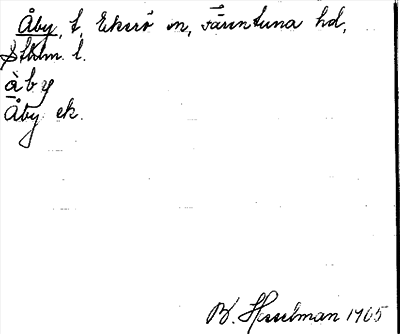 Åby, t, Ekerö sn, Färentuna hd,
Sthlm l.
åby
Åby ek.
B. Hesselman 1905